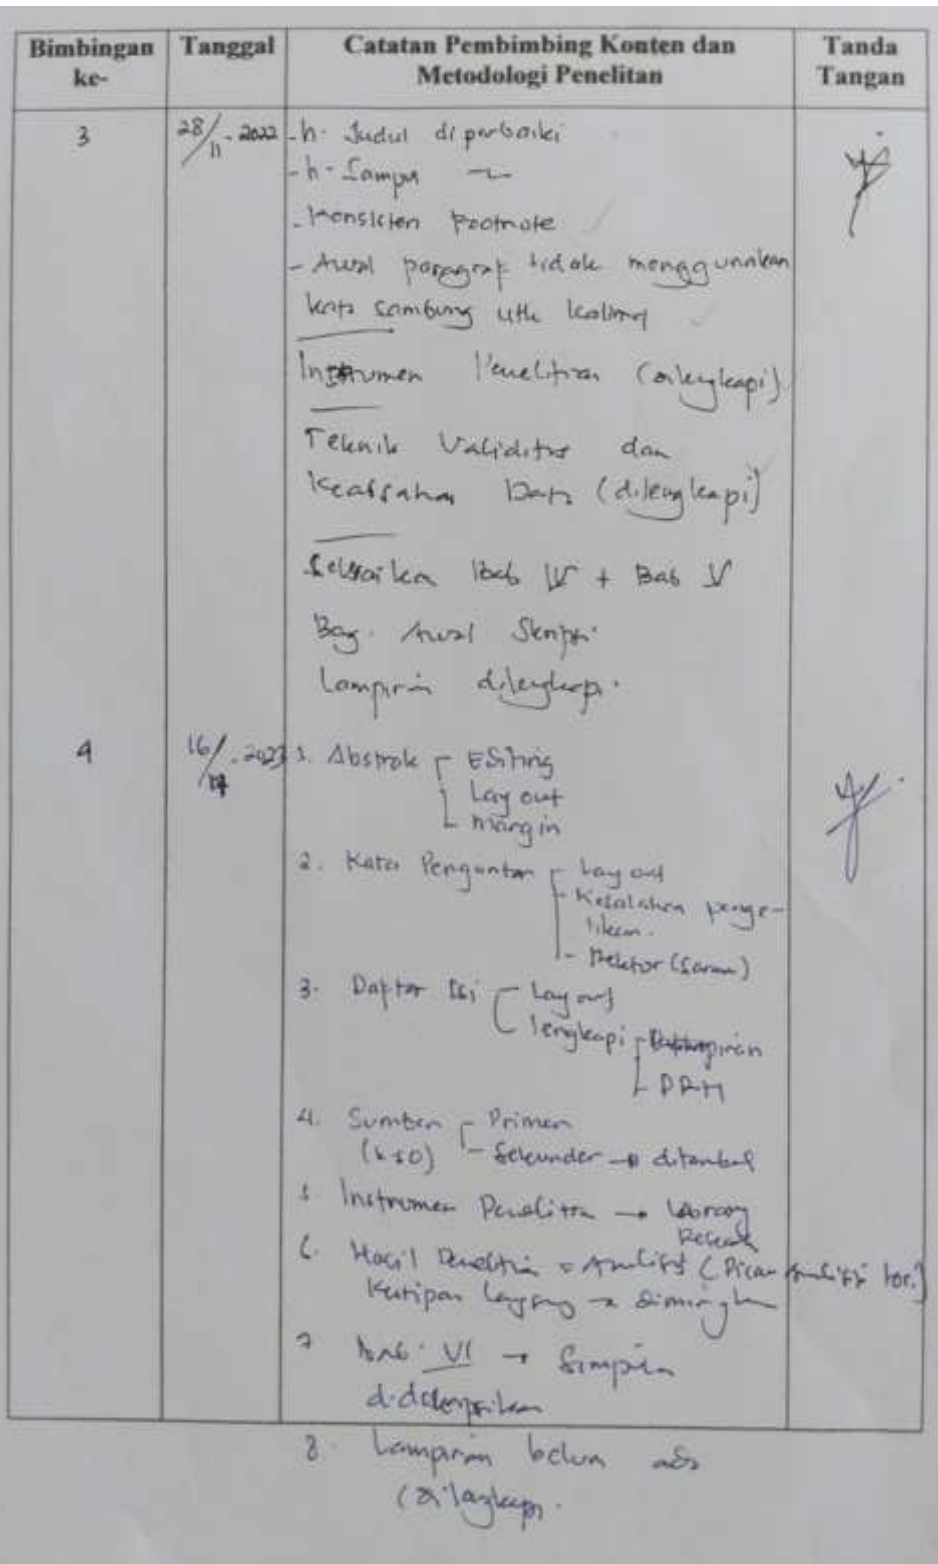 Bimbingan ke-
Tanggal
Catatan Pembimbing Konten dan
Metodologi Penelitan
Tanda Tangan
3
28/11-2022
- h. Judul diperbaiki
- h. Sampul
- Konsisten Footnote
- Awal paragraf tidak menggunakan
kata sambung utk kalimat
Instrumen Penelitian (dilengkapi)
Teknik Validitas dan
Keabsahan Data (dilengkapi)
Selesaikan Bab IV + Bab V
Bag. Awal Skripsi
Lampiran dilengkapi.
4
16/ -2023
1. Abstrak - Editing
Lay out
- margin
2. Kata Pengantar - Lay out
- Kesalahan penge-
tikan.
- Rektor (saran)
3. Daptar Isi - Lay out
lengkapi - Lampiran
- DRH
4. Sumber - Primer
- Sekunder → ditambah
5. Instrumen Penelitian → Library
Research
6. Hasil Penelitian = Analisis
Kutipan langsung →
7 Bab. VI → Simpulan
dideskripsikan
8. Lampiran belum ada
(dilengkapi.